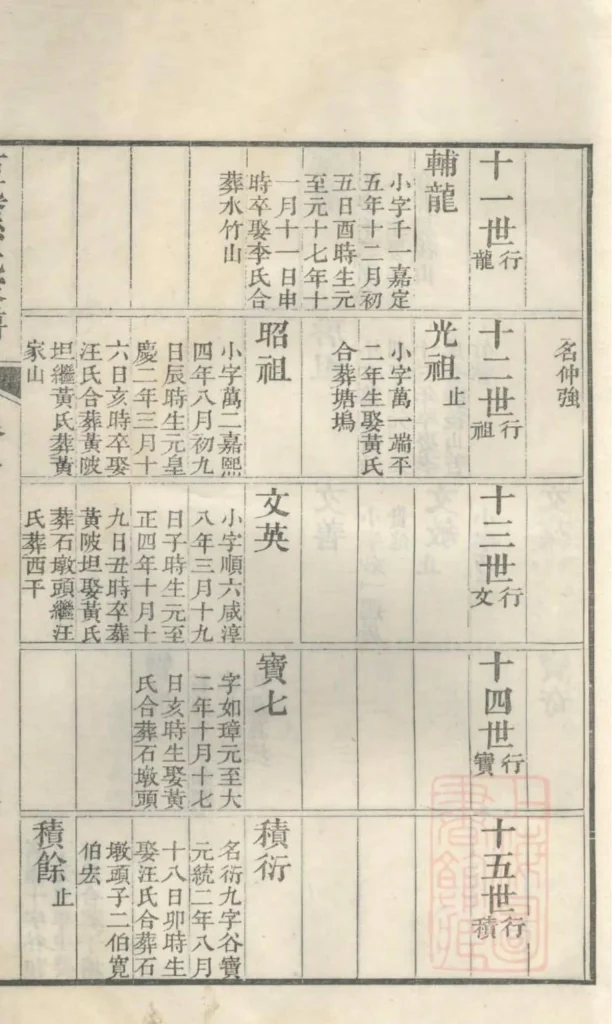 十一世行龍
輔龍
小字千一嘉定
五年十二月初
五日酉時生元
至元十七年十
一月十一日申
時卒娶李氏合
葬水竹山
名仲強
十二世行祖
光祖止
小字萬一端平
二年生娶黃氏
合葬塘塢
昭祖
小字萬二嘉熙
四年八月初九
日辰時生元皇
慶二年三月十
六日亥時卒娶
汪氏合葬黃陂
坦繼黃氏葬黃
家山
十三世行文
文英
小字順六咸淳
八年三月十九
日子時生元至
正四年十月十
九日丑時卒葬
黃陂坦娶黃氏
葬石墩頭繼汪
氏葬西干
十四世行寶
寶七
字如璋元至大
二年十月十七
日亥時生娶黃
氏合葬石墩頭
十五世行積
積衍
名衍九字谷寶
元統二年八月
十八日卯時生
娶汪氏合葬石
墩頭子二伯寬
伯宏
積餘止
上海圖
書館藏